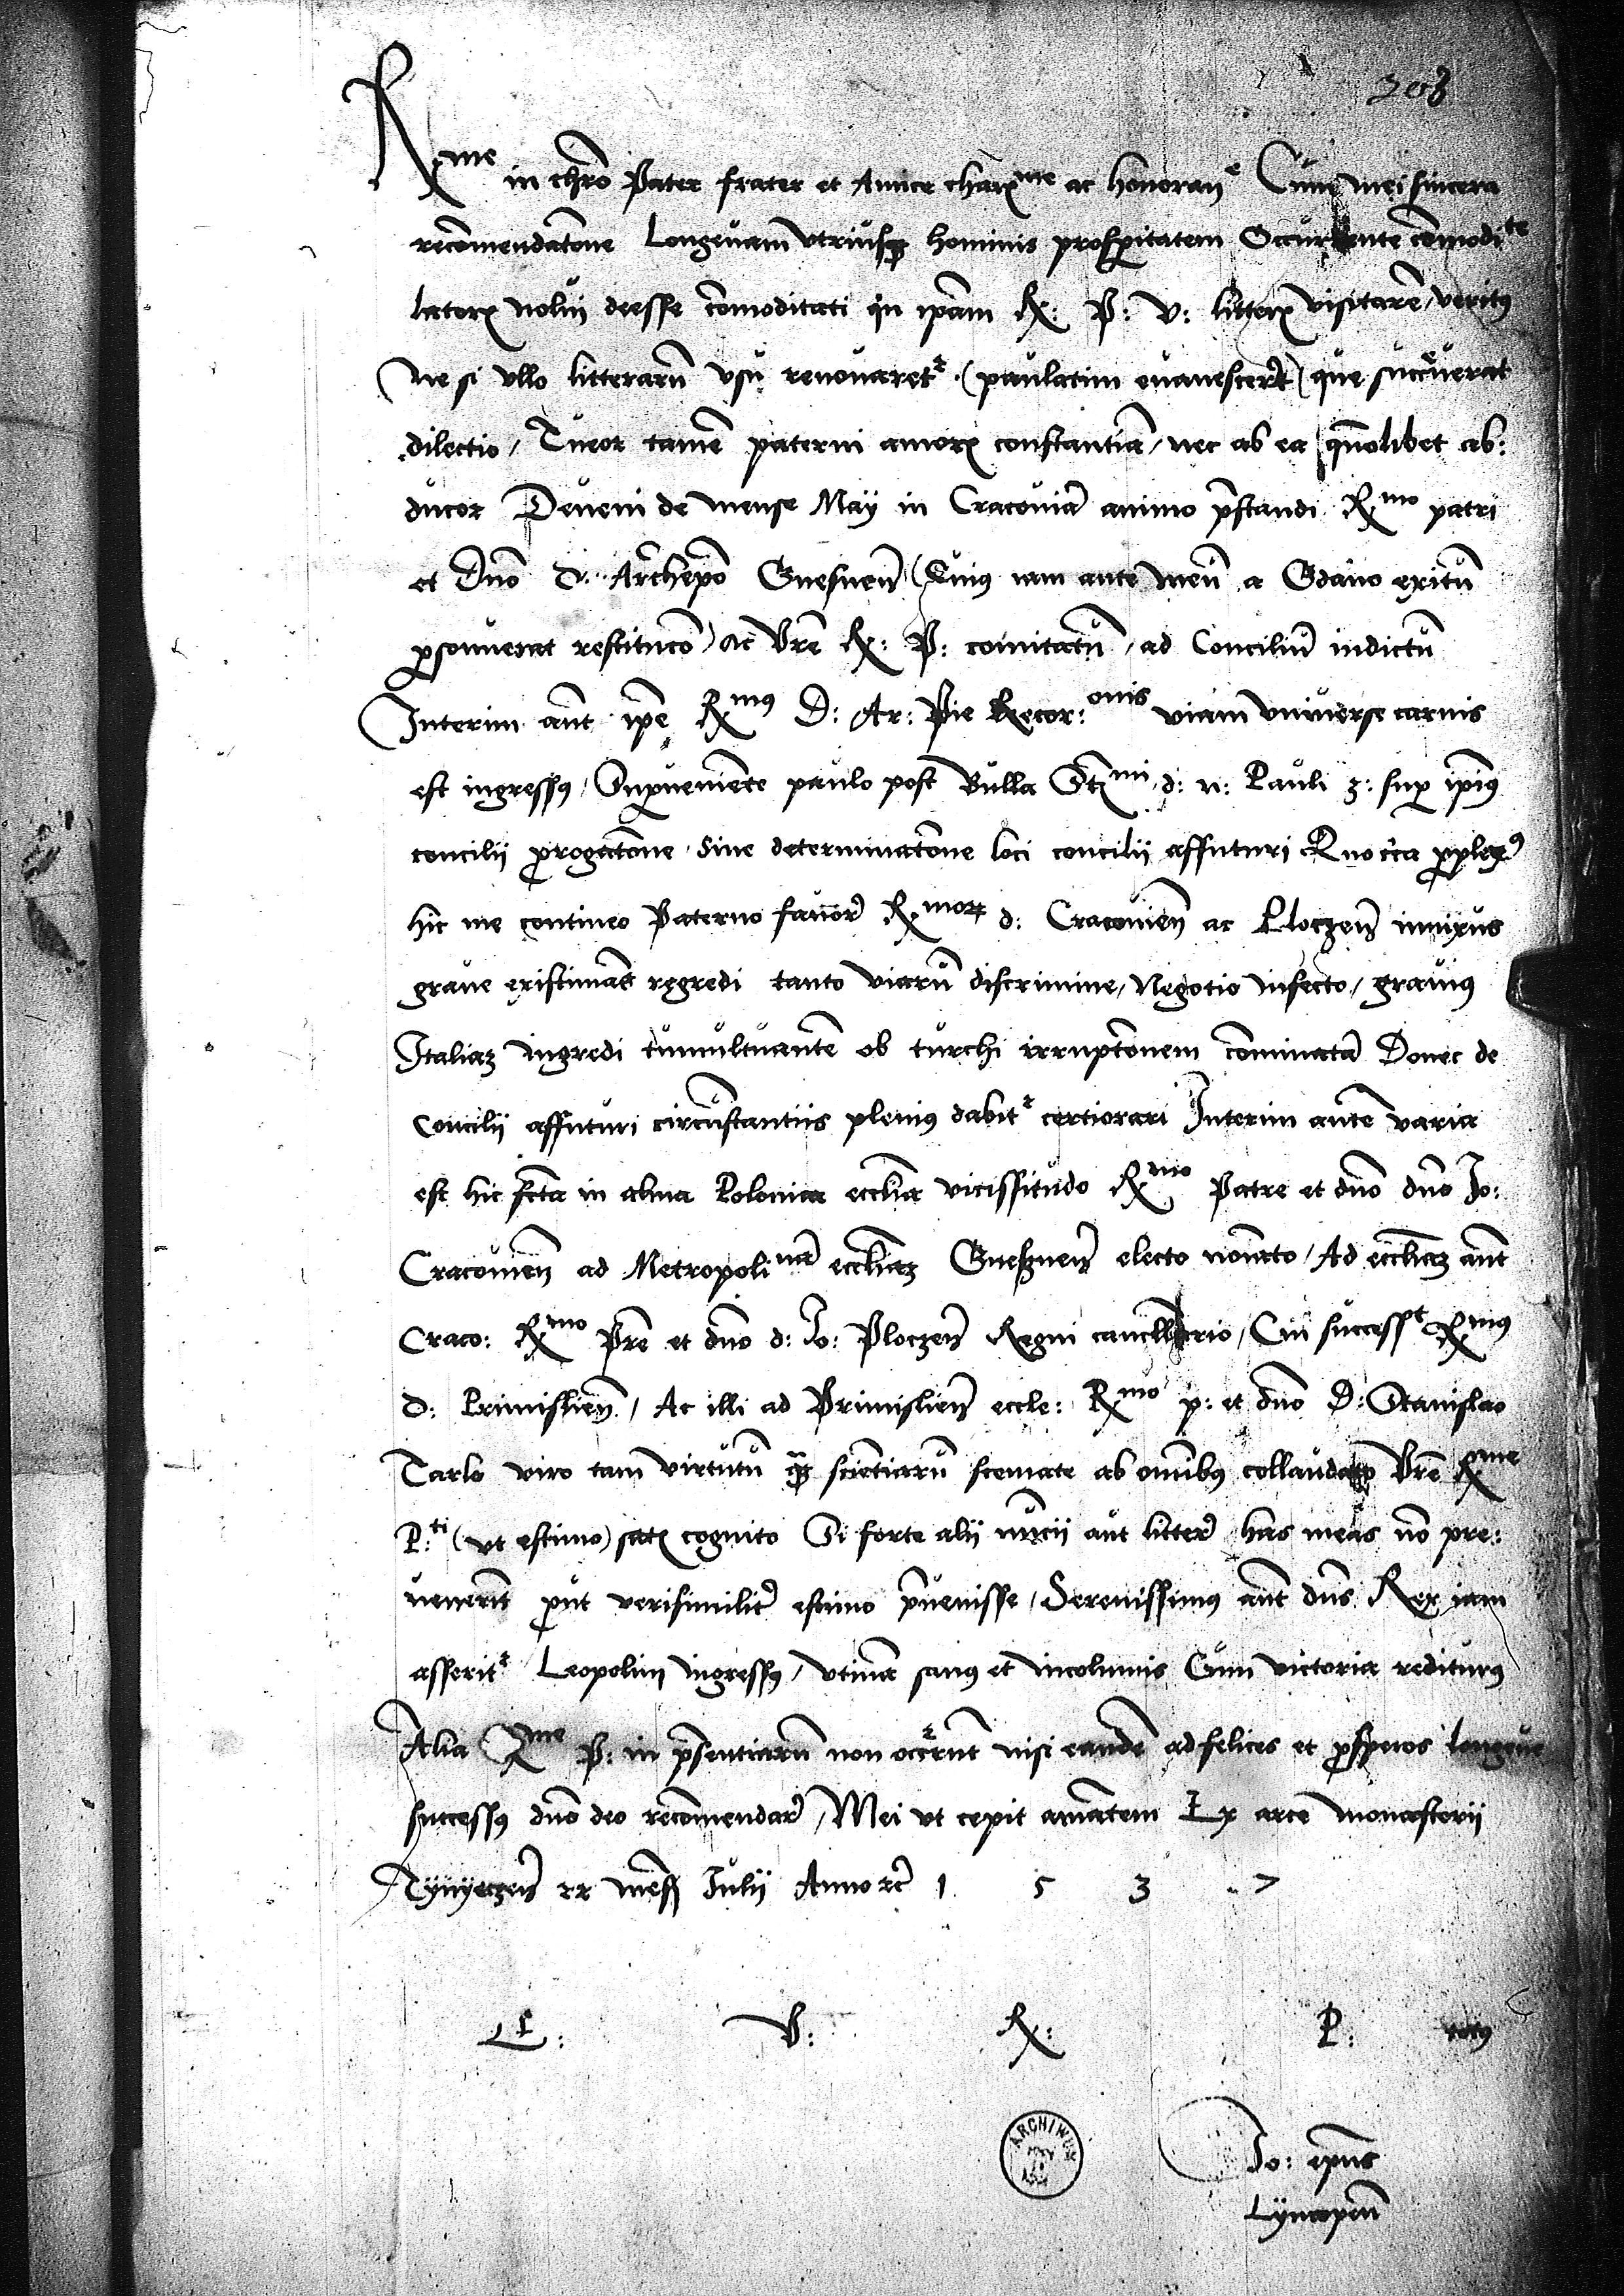 203
R.me in chro Pater frater et Amice charx.me ac honoran.e Cum mei sincera
recomendatone Longeuam vtriusq hominis prosperitatem Occurrente comodi.te
latorx nolui deesse comoditati qn ipam R: P: V: litterx visitare, veritus
ne si vllo litteraru usu renouaretr (paulatim euanesceret) que succreuerat
dilectio, Tueor tame paterni amorx constantia, nec ab ea quolibet ab:
ducor Deueni de mense Maij in Cracouia animo prestandi R.mo patri
et Dno D. Archiepo Gnesnen (Cuius iam ante meu a Gdano exitu
personuerat restituco) Ac Vre R: P: comitatu, ad Conciliu indictu
Interim aut ipe R.mus D: Ar: Pie Recor:onis viam vniuerse carnis
est ingressus, Superueniente paulo post Bulla St.mi d: n: Pauli 3: super ipius
concilij progatone Sine determinatone loci concilij affuturi Quo circa perplexus
hic me contineo Paterno fauore R.morx d: Cracouien ac Ploczen innixus
graue existimas regredi tanto viaru discrimine, Negotio infecto, grauius
Italiaz ingredi tumultuante ob turchi irruptonem cominata Donec de
Concilij affuturi circustantiis plenius dabitr certiorari Interim aute varia
est hic fcta in alma Polonica ecclia vicissitudo R.mo Patre et dno dno Jo:
Cracouien ad Metropoli.na eccliaz Gneznen electo noiato, Ad eccliaz aut
Craco: R.mo Pre et dno d: Jo: Ploczen Regni cancellario, Cui success.t R.mus
D: Primislien, Ac illi ad Primislien eccle: R.mo p: et dno D: Stanislao
Tarlo viro tam virtutu q scientiaru stemate ab omibus collaudato Vre R.me
P:ti (vt estimo) satx cognito Si forte alij nucij aut littere has meas no pre:
uenerit put verisimiliter estimo preuenisse, Serenissimus aut dns Rex iam
asseritr Leopolim ingressus, vtina sanus et incolumis Cum victoria rediturus
Alia R.me P: in presentiaru non occrrunt nisi eande ad felices et prosperos longeue
successus dno deo recomendare, Mei vt cepit amatem Ex arce monasterii
Tynyeczen xx mess Julij Anno rc 1 5 3 7
E: V: R: P: totus
ARCHIWUM
Jo: epus
Lyncopen